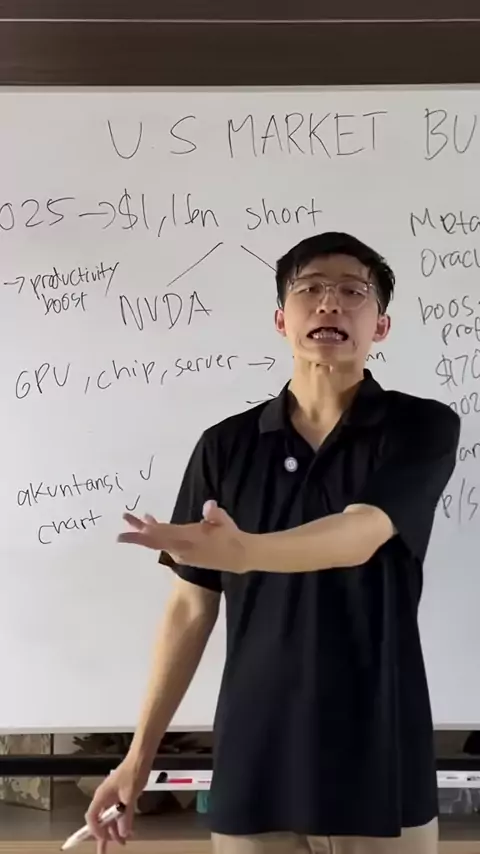 U.S MARKET BU
025 → $1,1bn short
→ productivity
boost
NVDA
GPU, chip, server →
akuntansi ✓
chart ✓
Meta
Oracl
boos
prof
$70